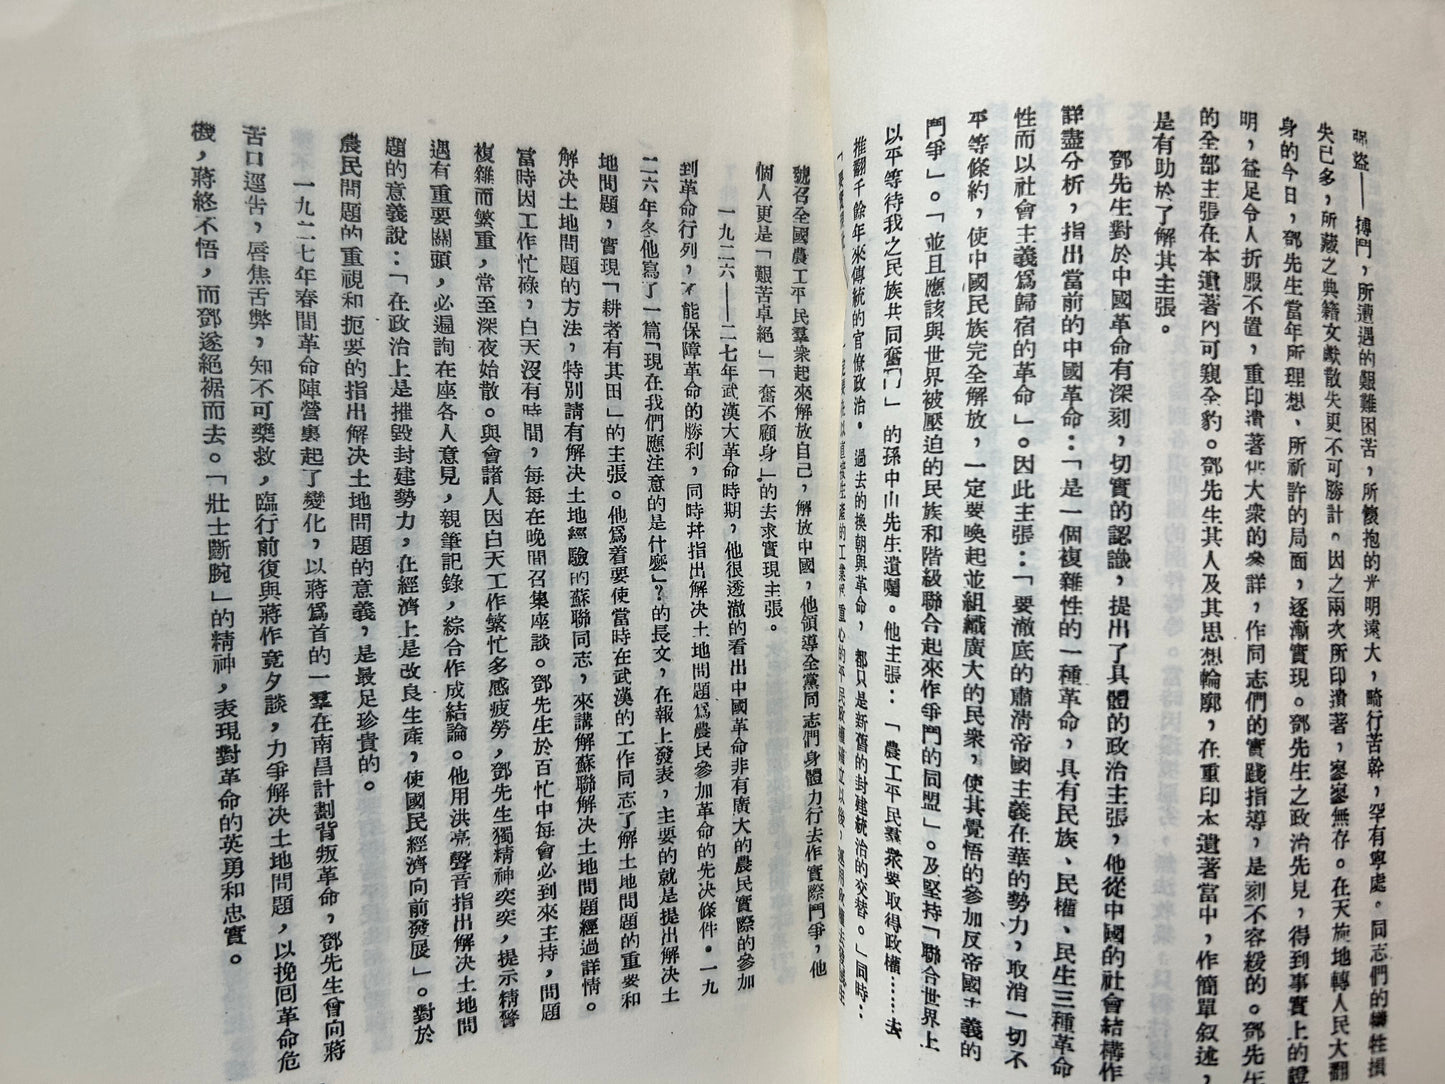 盜——搏鬥，所遭遇的艱難困苦，所懷抱的光明遠大，畸行苦幹，罕有寧處。同志們的犧牲損
失已多，所藏之典籍文獻散失更不可勝計。因之兩次所印遺著，寥寥無存。在天旋地轉人民大翻
身的今日，鄧先生當年所理想、所祈許的局面，逐漸實現。鄧先生之政治先見，得到事實上的證
明，益足令人折服不置，重印遺著供大衆的參詳，作同志們的實踐指導，是刻不容緩的。鄧先生
的全部主張在本遺著內可窺全豹。鄧先生其人及其思想輪廓，在重印本遺著當中，作簡單叙述，
是有助於了解其主張。
鄧先生對於中國革命有深刻，切實的認識，提出了具體的政治主張，他從中國的社會結構作
詳盡分析，指出當前的中國革命：「是一個複雜性的一種革命，具有民族、民權、民生三種革命
性而以社會主義爲歸宿的革命」。因此主張：「要澈底的肅清帝國主義在華的勢力，取消一切不
平等條約，使中國民族完全解放，一定要喚起並組織廣大的民衆，使其覺悟的參加反帝國主義的
鬥爭」。「並且應該與世界被壓迫的民族和階級聯合起來作爭鬥的同盟」。及堅持「聯合世界上
以平等待我之民族共同奮鬥」的孫中山先生遺囑。他主張：「農工平民羣衆要取得政權……去
推翻千餘年來傳統的官僚政治。過去的換朝與革命，都只是新舊的封建統治的交替。」同時：
直接生產的工業 重心的平民政權 立以後，運用政權去
號召全國農工平民羣衆起來解放自己，解放中國，他領導全黨同志們身體力行去作實際鬥爭，他
個人更是「艱苦卓絕」「奮不顧身」的去求實現主張。
一九二六——二七年武漢大革命時期，他很透澈的看出中國革命非有廣大的農民實際的參加
到革命行列，不能保障革命的勝利，同時幷指出解決土地問題爲農民參加革命的先決條件。一九
二六年冬他寫了一篇「現在我們應注意的是什麼」？的長文，在報上發表，主要的就是提出解決土
地問題，實現「耕者有其田」的主張。他爲着要使當時在武漢的工作同志了解土地問題的重要和
解決土地問題的方法，特別請有解決土地經驗的蘇聯同志，來講解蘇聯解決土地問題經過詳情。
當時因工作忙碌，白天沒有時間，每每在晚間召集座談。鄧先生於百忙中每會必到來主持，問題
複雜而繁重，常至深夜始散。與會諸人因白天工作繁忙多感疲勞，鄧先生獨精神奕奕，提示精警
遇有重要關頭，必遍詢在座各人意見，親筆記錄，綜合作成結論。他用洪亮聲音指出解決土地問
題的意義說：「在政治上是摧毀封建勢力，在經濟上是改良生產，使國民經濟向前發展」。對於
農民問題的重視和扼要的指出解決土地問題的意義，是最足珍貴的。
一九二七年春間革命陣營裏起了變化，以蔣爲首的一羣在南昌計劃背叛革命，鄧先生曾向蔣
苦口逕告，唇焦舌弊，知不可藥救，臨行前復與蔣作竟夕談，力爭解決土地問題，以挽回革命危
機，蔣終不悟，而鄧遂絕裾而去。「壯士斷腕」的精神，表現對革命的英勇和忠實。